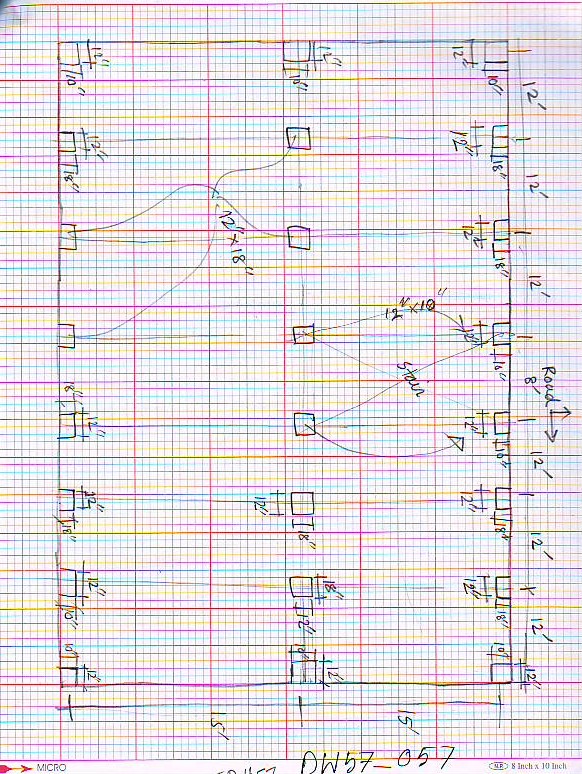 12"
10"
12"
10"
12"
10"
12'
12"
18"
12"
18"
12'
12"
18"
12'
12" x 18"
12" x 10"
12"
10"
Stair
8'
Road
18"
12"
12"
10"
12'
12"
18"
12"
18"
12"
18"
12'
12"
10"
18"
12"
12"
18"
12'
10"
12"
10"
12"
10"
12"
15'
15'
DW57_057
MICRO
M.R 8 Inch x 10 Inch